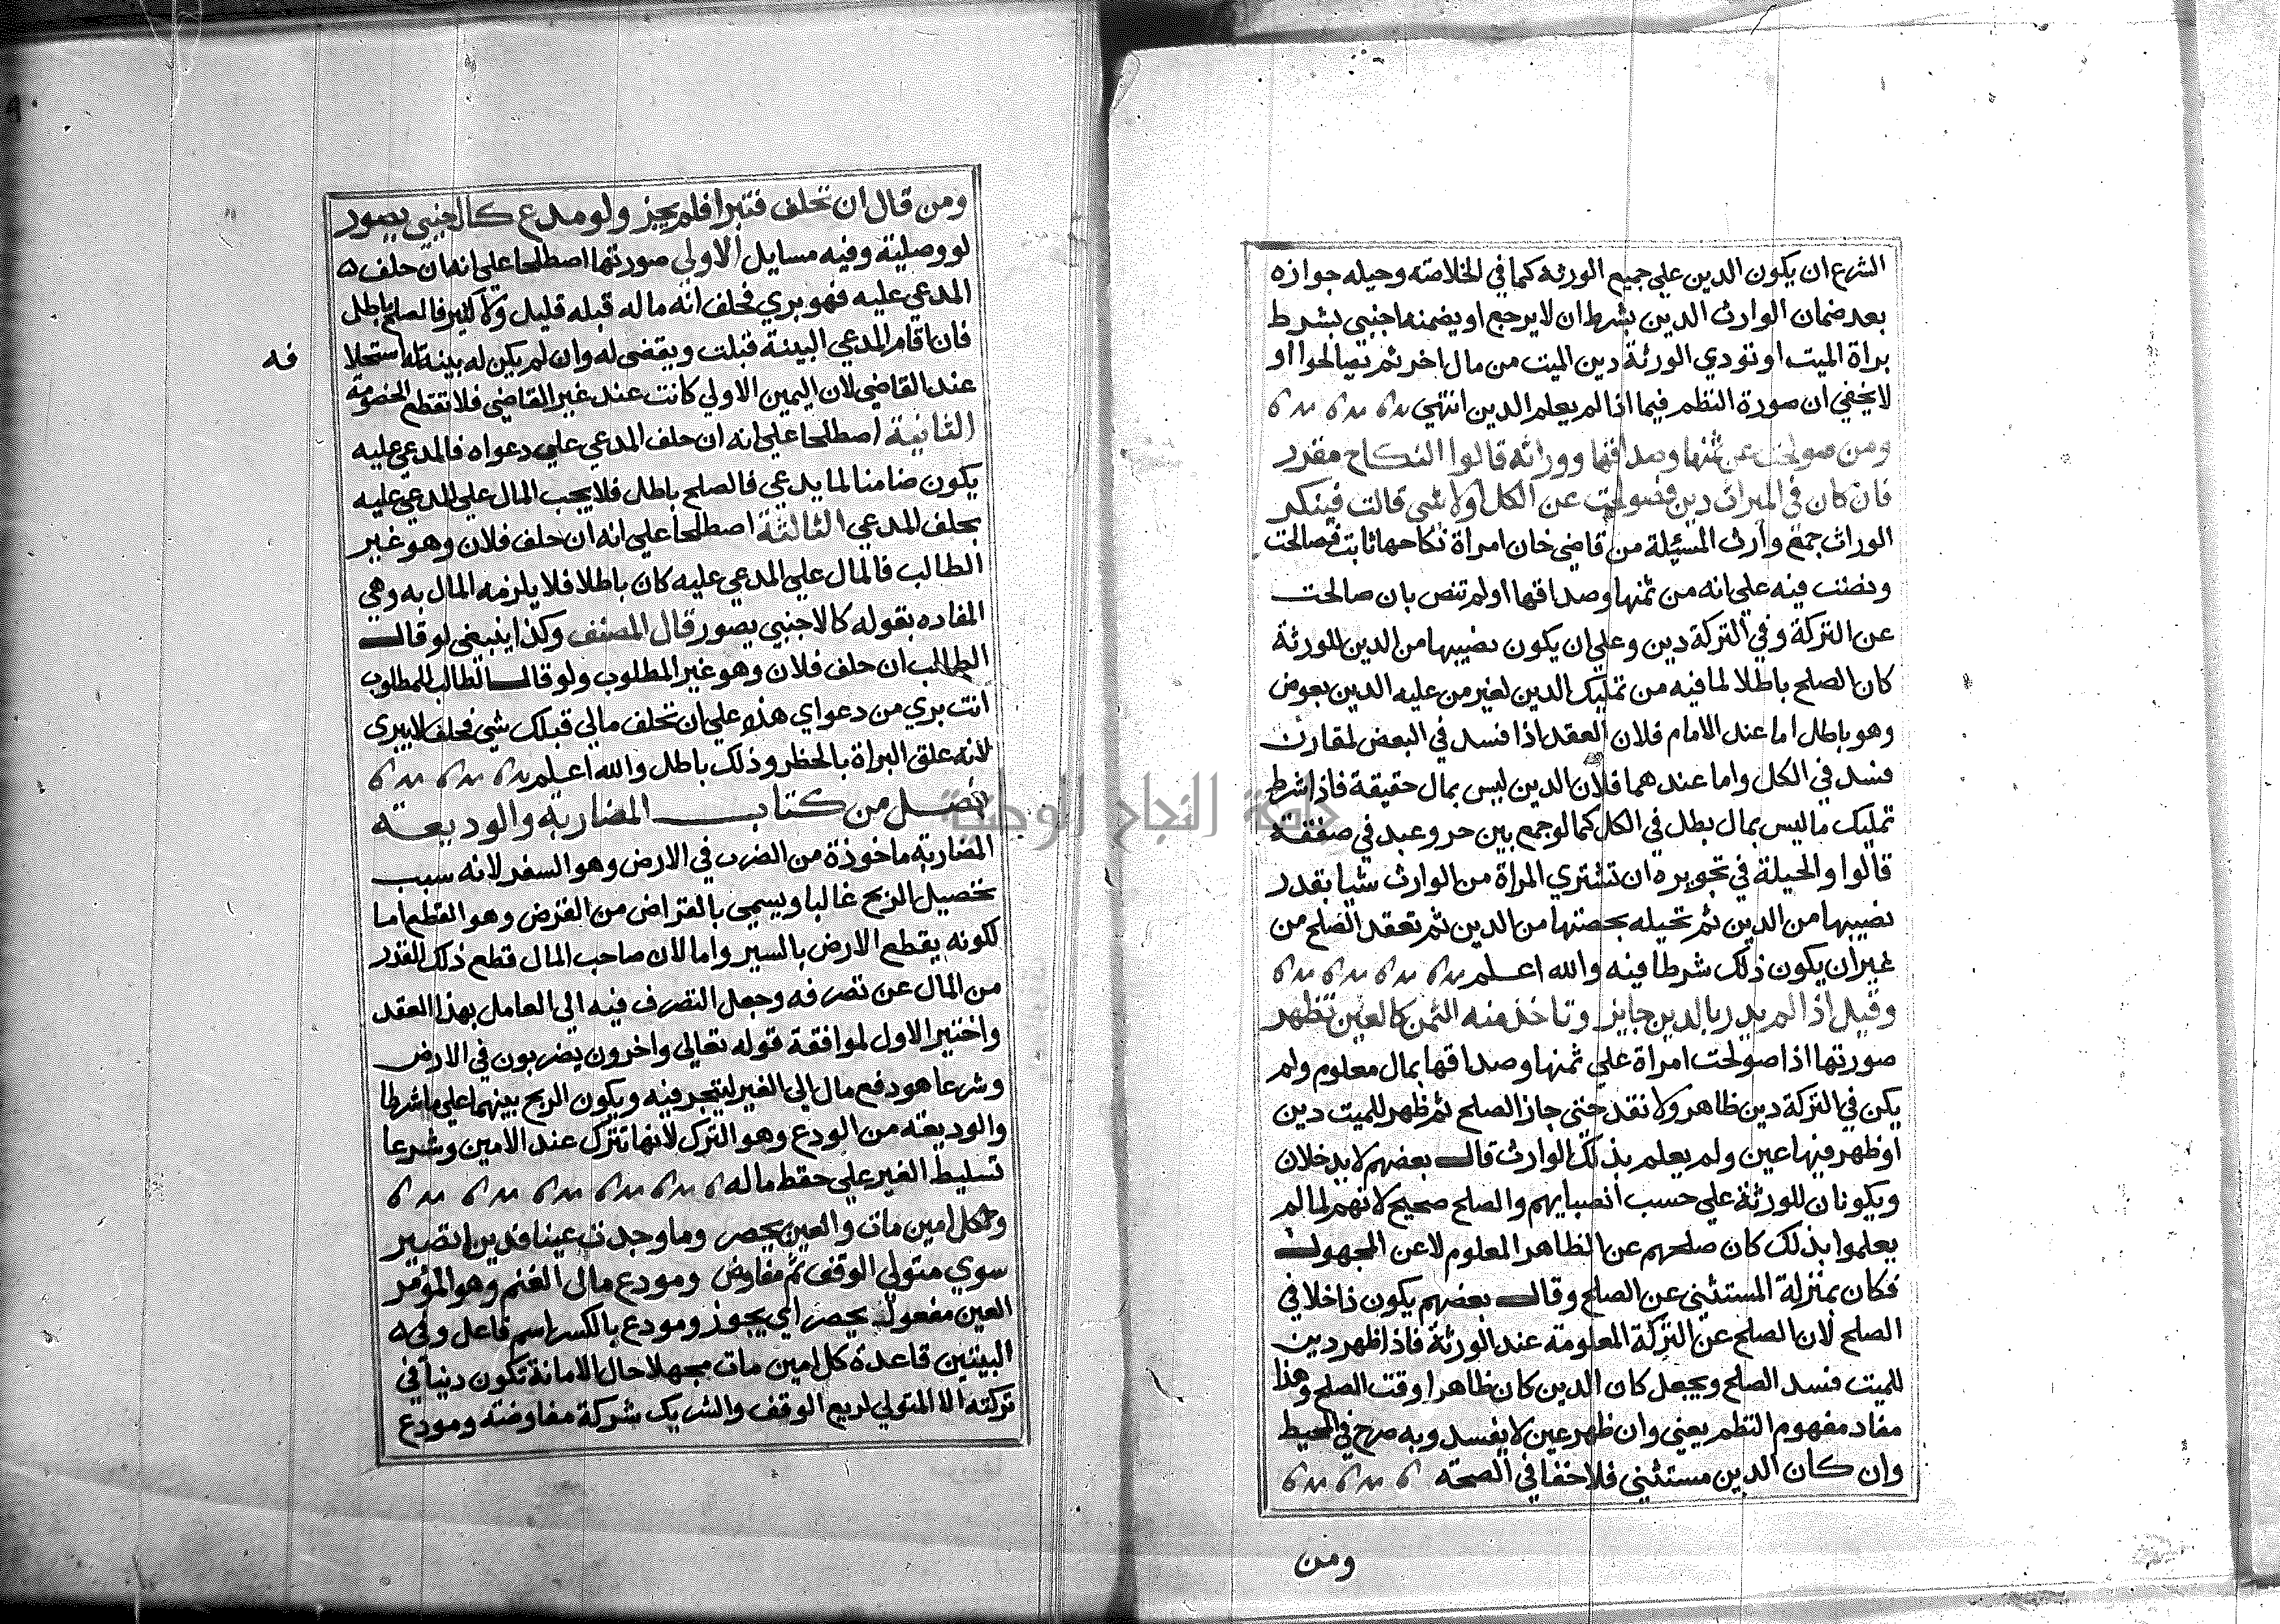 الشرع ان يكون الدين علي جميع الورثة كما في الخلاصة وحيله جوازه
بعد ضمان الوارث الدين بشرط ان لا يرجع او يضمنه اجنبي بشرط
براة الميت او تودي الورثة دين الميت من مال اخر ثم يصالحوا او
لا يخفي ان صورة النظم فيما اذا لم يعلم الدين انتهي
ومن صولحت عن ثمنها وصداقها ووراثه قالوا النكاح مقرر
فان كان في الميراث دين فصولحت عن الكل اولا شي قالت فينكر
الوراث جمع وارث المسئلة من قاضي خان امراة نكاحها ثابت فصالحت
ونصت فيه علي انه من ثمنها وصداقها او لم تنص بان صالحت
عن التركة وفي التركة دين وعلي ان يكون نصيبها من الدين للورثة
كان الصلح باطلا لما فيه من تمليك الدين لغير من عليه الدين بعوض
وهو باطل اما عند الامام فلان العقد اذا فسد في البعض لمقارن
فسد في الكل واما عندهما فلان الدين ليس بمال حقيقة فاذا شرط
تمليك ما ليس بمال بطل في الكل كما لو جمع بين حر وعبد في صفقة
قالوا والحيلة في تجويزه ان تشتري المراة من الوارث شيا بقدر
نصيبها من الدين ثم تحيله بحصتها من الدين ثم تعقد الصلح من
غير ان يكون ذلك شرطا فيه والله اعلم
وقيل اذا لم يدر بالدين جايز وتاخذ منه الثمن كالعين تظهر
صورتها اذا صولحت امراة علي ثمنها وصداقها بمال معلوم ولم
يكن في التركة دين ظاهر ولا نقد حتي جاز الصلح ثم ظهر للميت دين
او ظهر فيها عين ولم يعلم بذلك الوارث قال بعضهم لا يدخلان
ويكونان للورثة علي حسب انصبايهم والصلح صحيح لانهم لما لم
يعلموا بذلك كان صلحهم عن الظاهر المعلوم لا عن المجهول
فكان بمنزلة المستثني عن الصلح وقال بعضهم يكون داخلا في
الصلح لان الصلح عن التركة المعلومة عند الورثة فاذا ظهر دين
للميت فسد الصلح ويجعل كان الدين كان ظاهرا وقت الصلح وهذا
مفاد مفهوم النظم يعني وان ظهر عين لا يفسد وبه صرح في المحيط
وان كان الدين مستثني فلا خفا في الصحة
ومن
ومن قال ان تحلف فتبرا فلم يجز ولو مدع كالاجنبي يصور
لو وصلية وفيه مسايل الاولي صورتها اصطلحا علي انه ان حلف
المدعي عليه فهو بري فحلف انه ما له قبله قليل ولا كثير فالصلح باطل
فان اقام المدعي البينة قبلت ويقضي له وان لم يكن له بينة له استحلا
فه
عند القاضي لان اليمين الاولي كانت عند غير القاضي فلا تقطع الخصومة
الثانية اصطلحا علي انه ان حلف المدعي علي دعواه فالمدعي عليه
يكون ضامنا لما يدعي فالصلح باطل فلا يجب المال علي المدعي عليه
بحلف المدعي الثالثة اصطلحا علي انه ان حلف فلان وهو غير
الطالب فالمال علي المدعي عليه كان باطلا فلا يلزمه المال به وهي
المفاده بقوله كالاجنبي يصور قال المصنف وكذا ينبغي لو قال
الطالب ان حلف فلان وهو غير المطلوب ولو قال الطالب للمطلوب
انت بري من دعواي هذه علي ان تحلف مالي قبلك شي فحلف لا يبري
لانه علق البراة بالخطر وذلك باطل والله اعلم
فصل من كتاب المضاربة والوديعة
المضاربة ماخوذة من الضرب في الارض وهو السفر لانه سبب
تحصيل الربح غالبا ويسمي بالقراض من القرض وهو القطع اما
لكونه يقطع الارض بالسير واما لان صاحب المال قطع ذلك القدر
من المال عن تصرفه وجعل التصرف فيه الي العامل بهذا العقد
واختير الاول لموافقة قوله تعالي واخرون يضربون في الارض
وشرعا هو دفع مال الي الغير ليتجر فيه ويكون الربح بينهما علي ما شرطا
والوديعة من الودع وهو الترك لانها تترك عند الامين وشرعا
تسليط الغير علي حفظ ماله
وكل امين مات والعين يحصر وما وجدت عينا فدينا تصير
سوي متولي الوقف ثم مفاوض ومودع مال الغنم وهو المؤمر
العين مفعول يحصر اي يحوز ومودع بالكسر اسم فاعل وفي
البيتين قاعدة كل امين مات مجهلا حال الامانة تكون دينا في
تركته الا المتولي لريع الوقف والشريك شركة مفاوضة ومودع
جامعة النجاح الوطنية